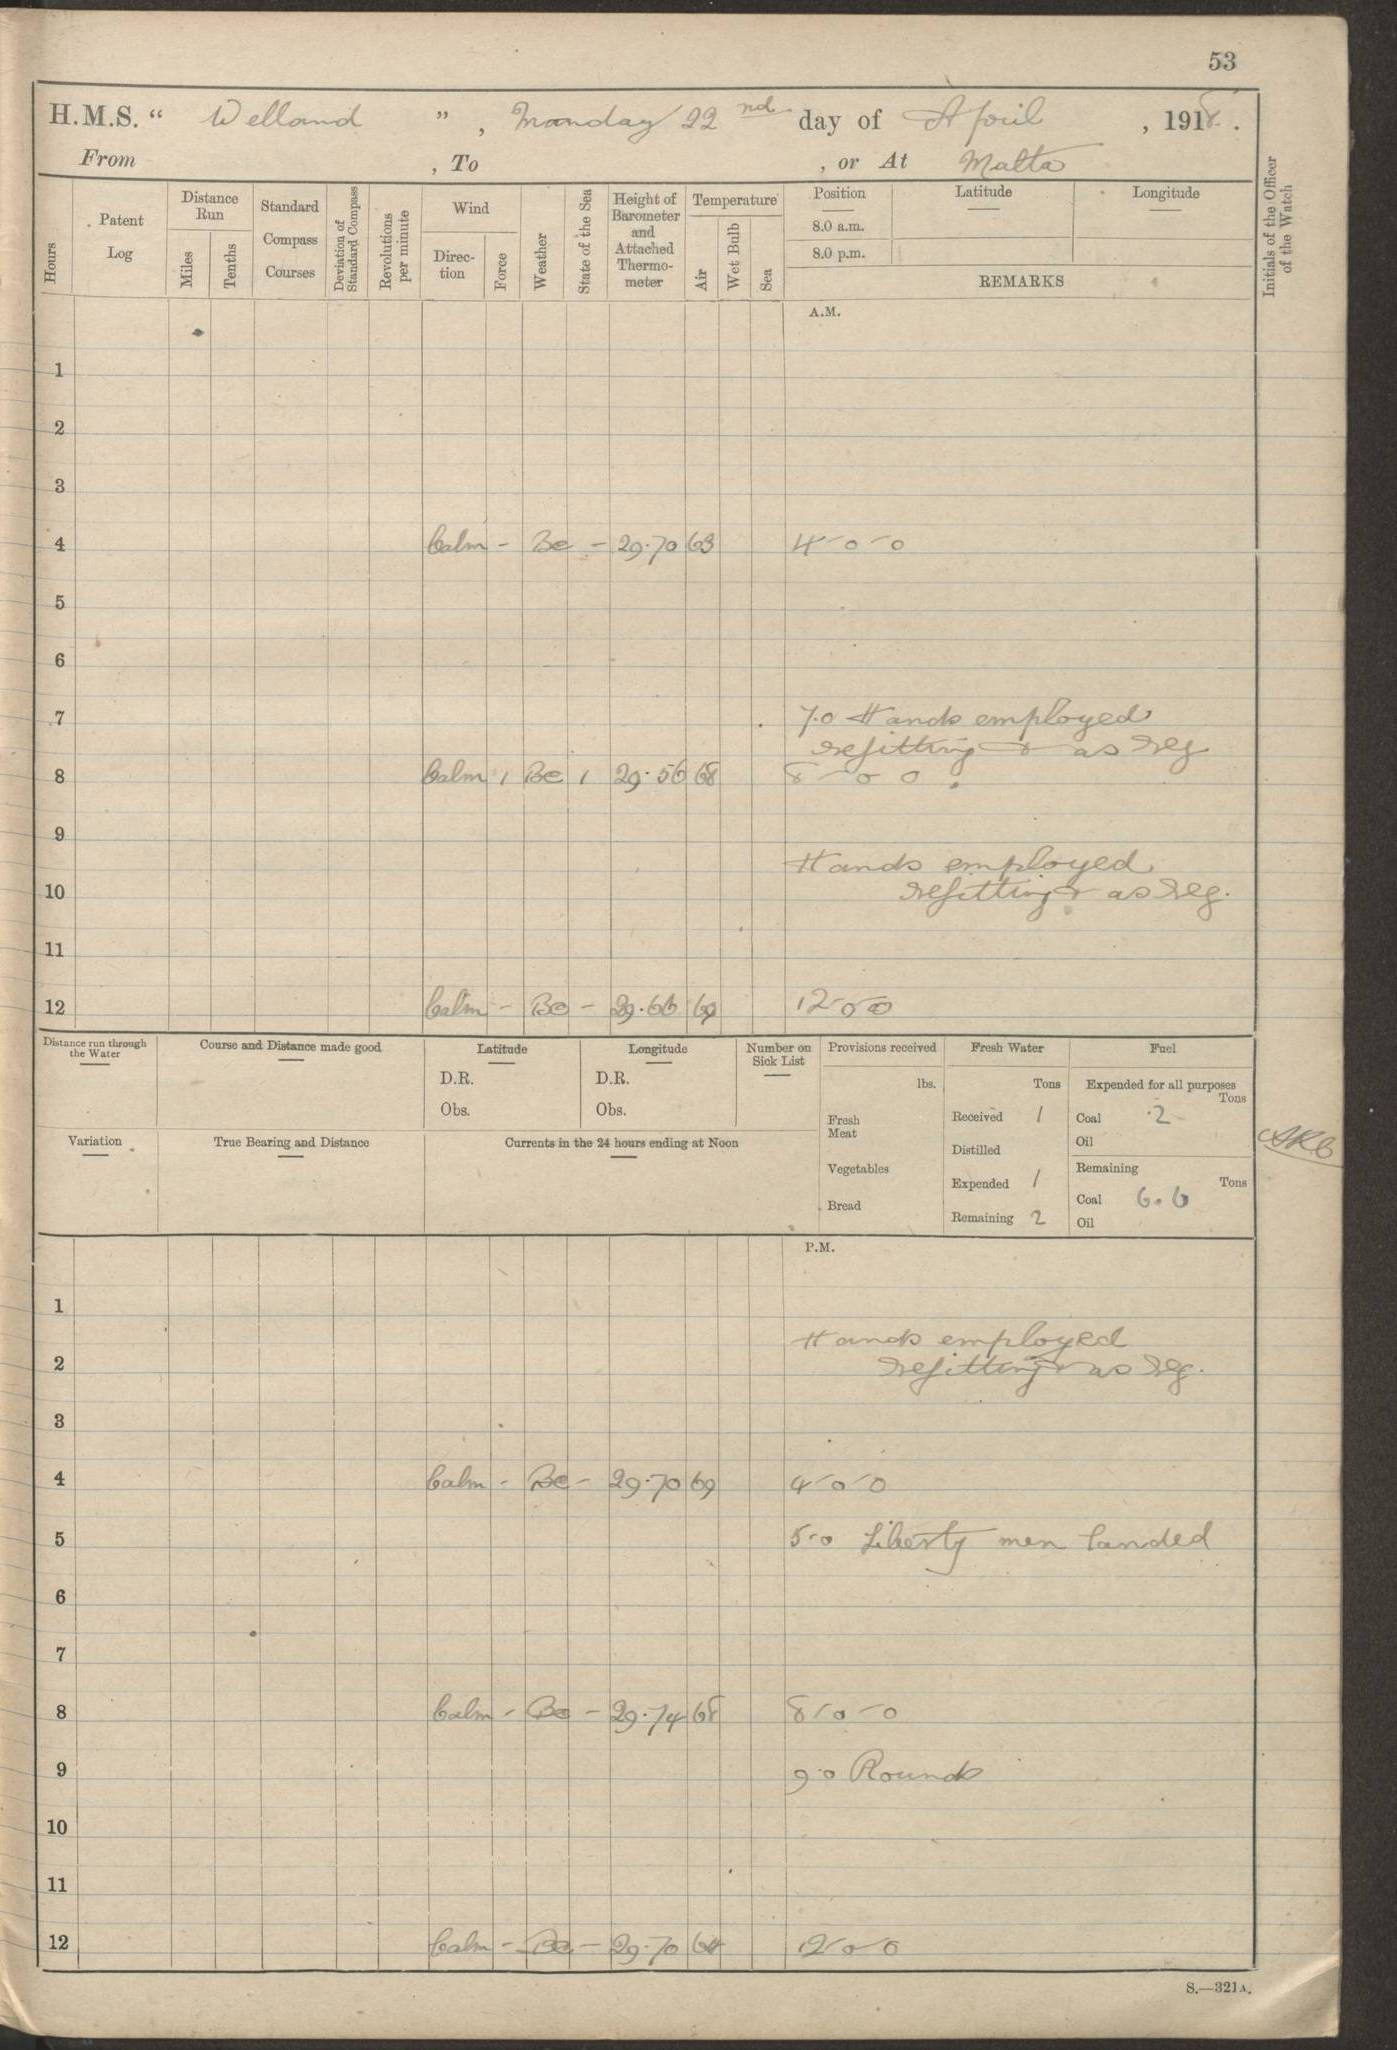 53
H.M.S. “ Welland ” , Monday 22nd day of April , 1918 .
From , To , or At Malta
Hours
Patent Log
Distance Run
Miles
Tenths
Standard Compass Courses
Deviation of Standard Compass
Revolutions per minute
Wind
Direction
Force
Weather
State of the Sea
Height of Barometer and Attached Thermometer
Temperature
Air
Wet Bulb
Sea
Position
8.0 a.m.
8.0 p.m.
Latitude
Longitude
REMARKS
Initials of the Officer of the Watch
A.M.
1
2
3
4 Calm - Bc - 29.70 63 4-0-0
5
6
7 7.0 Hands employed
refitting & as req
8 Calm 1 Bc 1 29.56 68 8-0 0
9
Hands employed
10 refitting & as req.
11
12 Calm - Bc - 29.66 69 12-0-0
Distance run through the Water
Course and Distance made good
Latitude
D.R.
Obs.
Longitude
D.R.
Obs.
Number on Sick List
Provisions received
lbs.
Fresh Meat
Vegetables
Bread
Fresh Water
Tons
Received 1
Distilled
Expended 1
Remaining 2
Fuel
Expended for all purposes
Tons
Coal .2
Oil
Remaining
Tons
Coal 6.6
Oil
Variation
True Bearing and Distance
Currents in the 24 hours ending at Noon
P.M.
1
Hands employed
2 refitting & as req.
3
4 Calm - Bc - 29.70 69 4-0-0
5 5-0 Liberty men landed
6
7
8 Calm - Bc - 29.74 68 8-0-0
9 9.0 Rounds
10
11
12 Calm - Bc - 29.70 64 12-0-0
S.—321A.